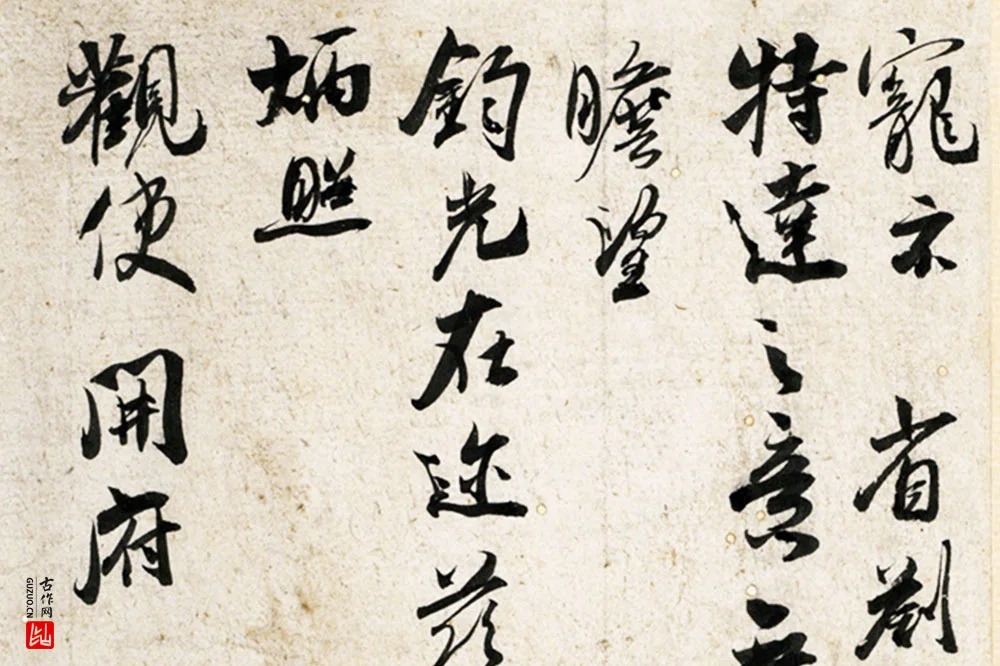 寵示 省劄
特達之意
瞻望
鈞光在迩茲
炳照
觀使 開府
古作网
GUZUO.CN